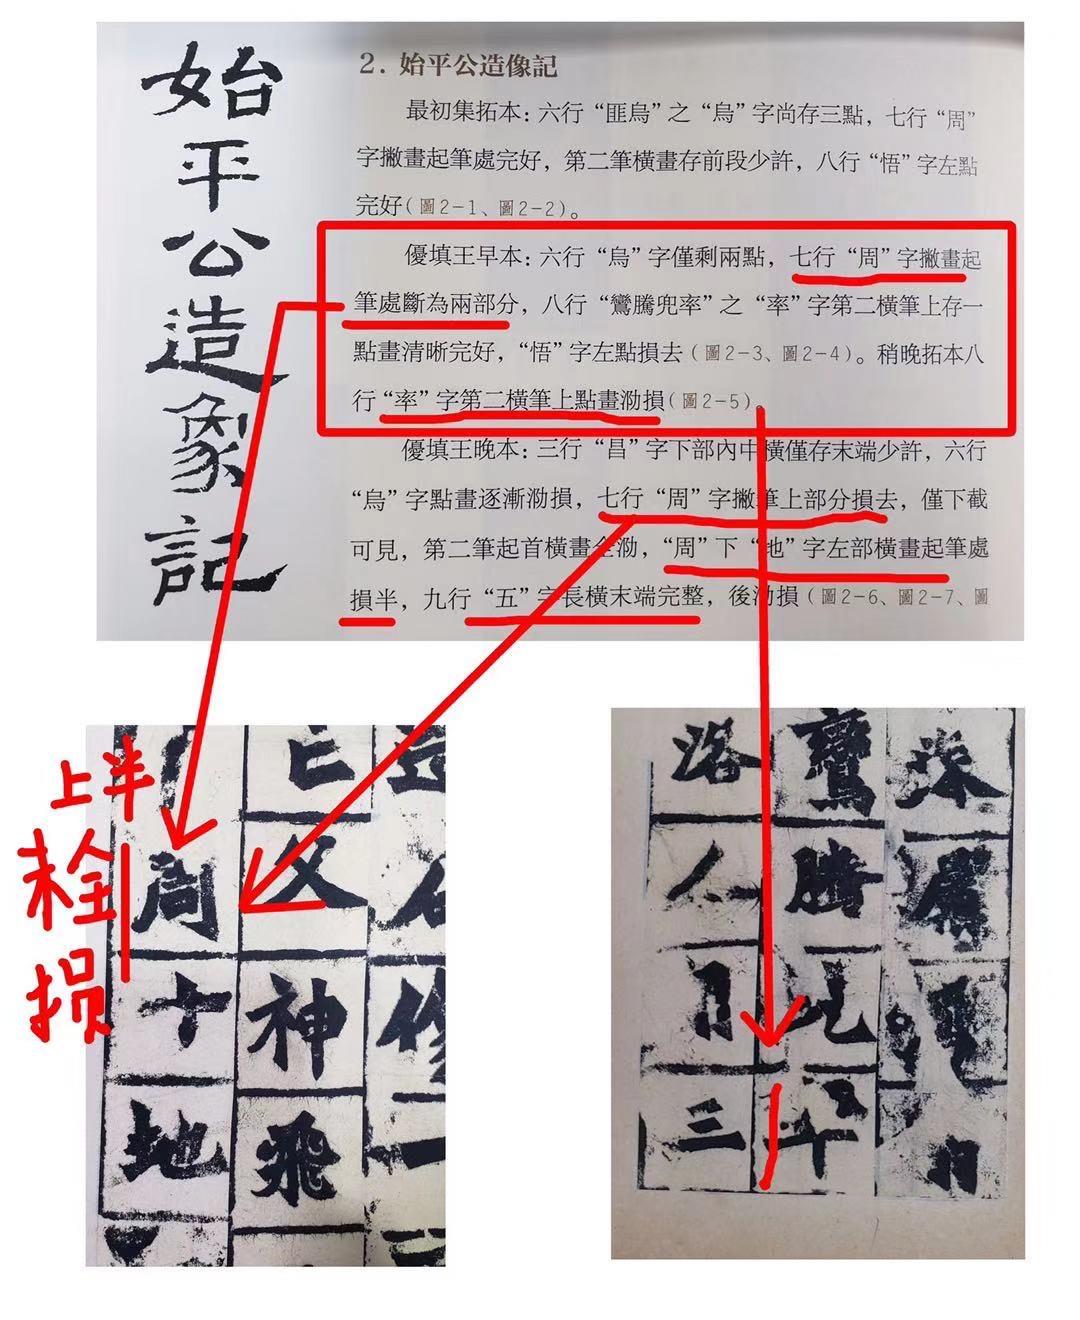 始平公造象記
2. 始平公造像記
最初集拓本：六行“匪烏”之“烏”字尚存三點，七行“周”
字撇畫起筆處完好，第二筆橫畫存前段少許，八行“悟”字左點
完好（圖2-1、圖2-2）。
優填王早本：六行“烏”字僅剩兩點，七行“周”字撇畫起
筆處斷為兩部分，八行“鸞騰兜率”之“率”字第二橫筆上存一
點畫清晰完好，“悟”字左點損去（圖2-3、圖2-4）。稍晚拓本八
行“率”字第二橫筆上點畫泐損（圖2-5）。
優填王晚本：三行“昌”字下部內中橫僅存末端少許，六行
“烏”字點畫逐漸泐損，七行“周”字撇筆上部分損去，僅下截
可見，第二筆起首橫畫全泐，“周”下“地”字左部橫畫起筆處
損半，九行“五”字長橫末端完整，後泐損（圖2-6、圖2-7、圖
上半
全
损
父神飛
周十地
鸞騰
洛人
三